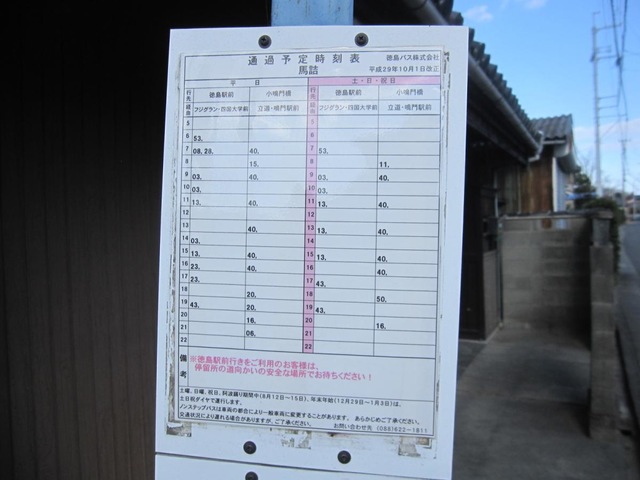 通過予定時刻表 徳島バス株式会社
馬詰 平成29年10月1日改正
平 日 土・日・祝日
行先 徳島駅前 小鳴門橋 行先 徳島駅前 小鳴門橋
経由 フジグラン・四国大学前 立道・鳴門駅前 経由 フジグラン・四国大学前 立道・鳴門駅前
5 5
6 53. 6
7 08. 28. 40. 7 53.
8 15. 8 11.
9 03. 40. 9 03. 40.
10 03. 10 03.
11 13. 40. 11 13. 40.
12 12
13 40. 13 13. 40.
14 03. 14
15 13. 40. 15 13. 40.
16 23. 40. 16 40.
17 23. 17 43.
18 20. 18 50.
19 43. 20. 19 43.
20 16. 20 16.
21 06. 21
22 22
備考
※徳島駅前行きをご利用のお客様は、
停留所の道向かいの安全な場所でお待ちください！
土曜、日曜、祝日、阿波踊り期間中(8月12日～15日)、年末年始(12月29日～1月3日)は、
土日祝ダイヤで運行します。
ノンステップバスは車両の都合により一般車両に変更することがあります。 あらかじめご了承ください。
交通状況により遅れる場合がありますが、ご了承ください。 お問い合わせ先 (088)622-1811